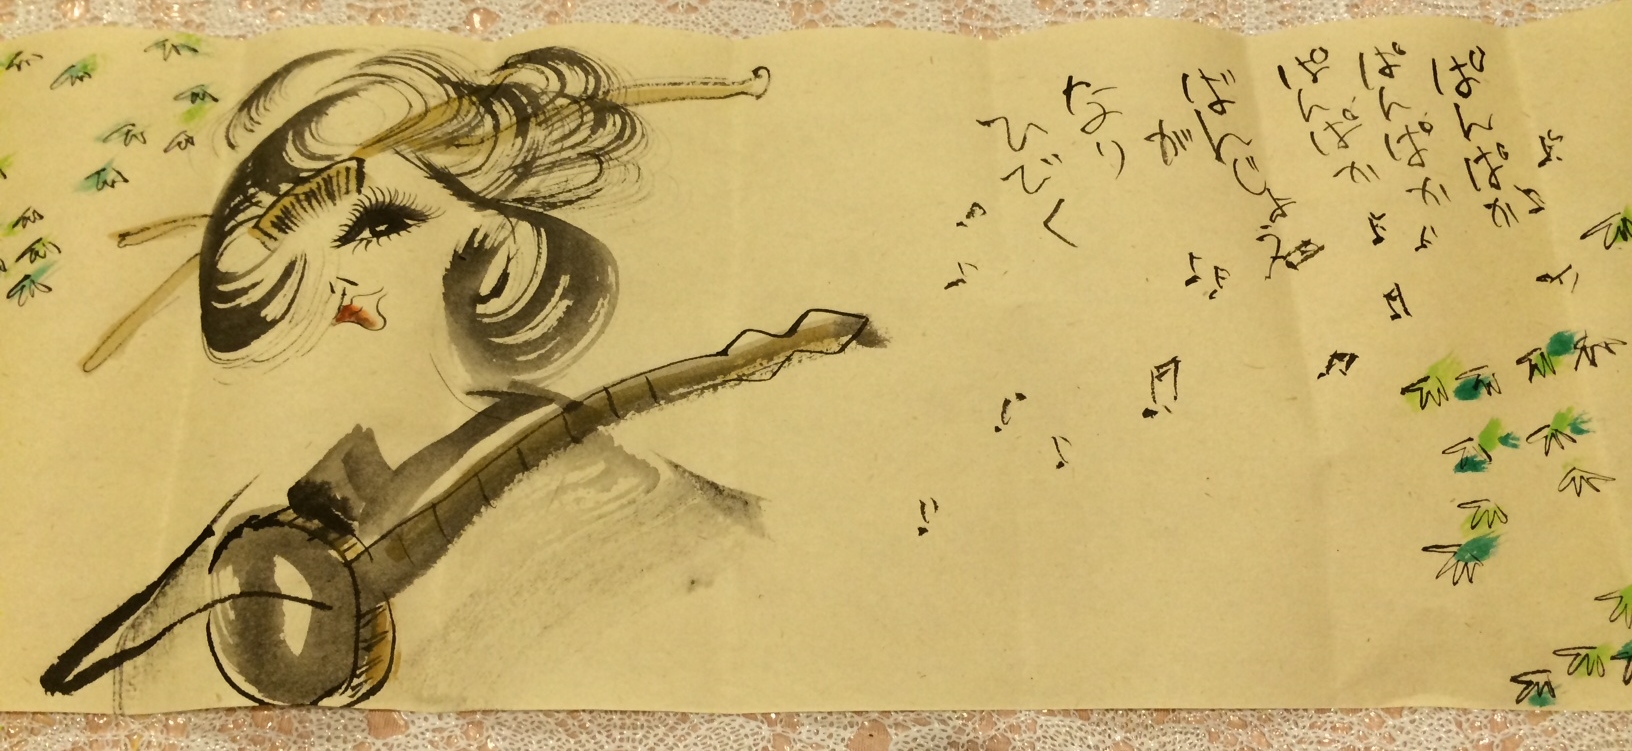 ぱんぱか
ぱんぱか
ぱんぱか
ばんじょ
が
なり
ひびく